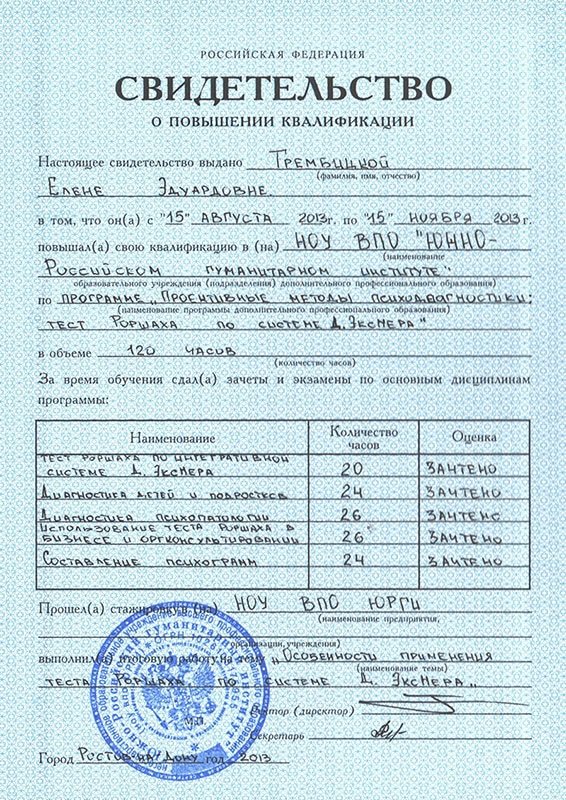 РОССИЙСКАЯ ФЕДЕРАЦИЯ
СВИДЕТЕЛЬСТВО
О ПОВЫШЕНИИ КВАЛИФИКАЦИИ
Настоящее свидетельство выдано Трембицкой
(фамилия, имя, отчество)
Елене Эдуардовне.
в том, что он(а) с "15" АВГУСТА 2013г. по "15" НОЯБРЯ 2013г.
повышал(а) свою квалификацию в (на) НОУ ВПО "ЮЖНО-
(наименование
Российском гуманитарном институте"
образовательного учреждения (подразделения) дополнительного профессионального образования)
по программе „Проективные методы психодиагностики:
(наименование программы дополнительного профессионального образования)
тест Роршаха по системе Д. Экснера"
в объеме 120 часов
(количество часов)
За время обучения сдал(а) зачеты и экзамены по основным дисциплинам
программы:
Наименование Количество часов Оценка
тест Роршаха по интегративной системе Д. Экснера 20 зачтено
Диагностика детей и подростков 24 зачтено
Диагностика психопатологии 26 зачтено
Использование теста Роршаха в бизнесе и оргконсультировании 26 зачтено
Составление психограмм 24 зачтено
Прошел(а) стажировку в (на) НОУ ВПО ЮРГИ
(наименование предприятия,
организации, учреждения)
выполнил(а) итоговую работу на тему „Особенности применения
(наименование темы)
теста Роршаха по системе Д. Экснера„
Ректор (директор)
М.П.
Секретарь
Город Ростов-на-Дону год 2013